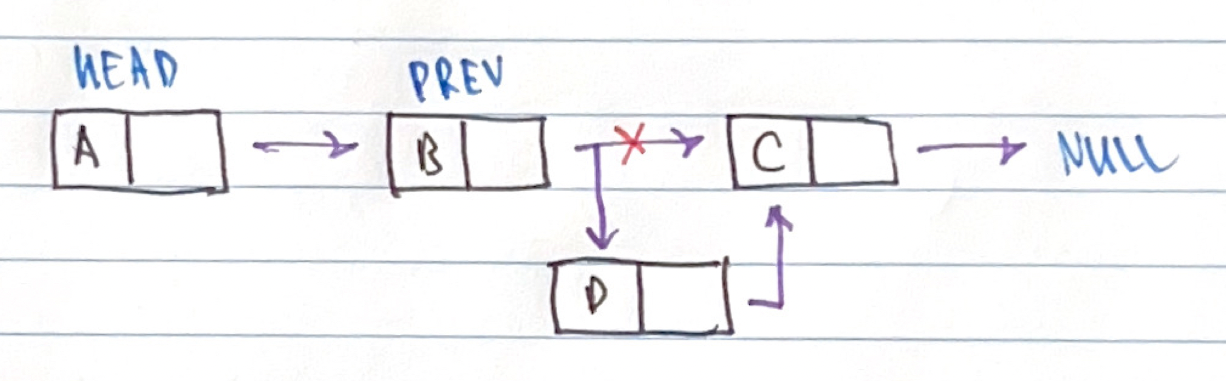 HEAD PREV
A B C NULL
D